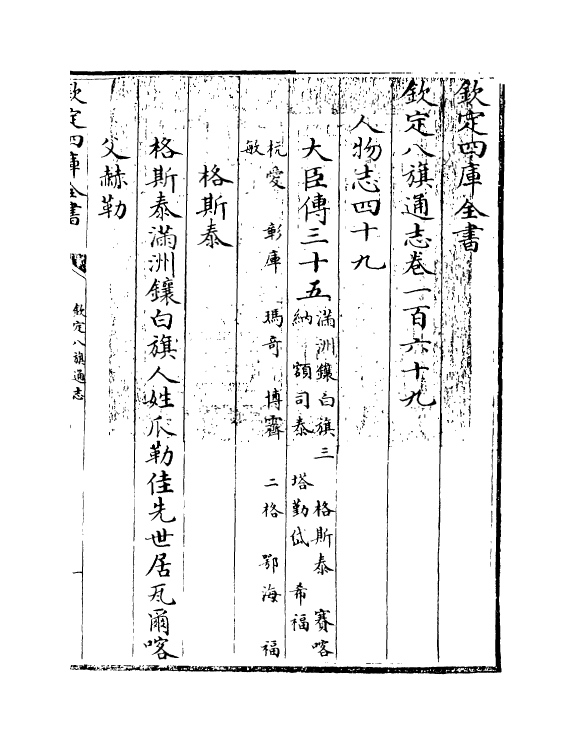 欽定四庫全書
欽定八旗通志卷一百六十九
人物志四十九
大臣傳三十五
滿洲鑲白旗三 格斯泰 賽喀
納 額司泰 塔勤岱 希福
杭愛 彰庫 瑪奇 博霽 二格 鄂海 福
敏
格斯泰
格斯泰滿洲鑲白旗人姓瓜勒佳先世居瓦爾喀
父赫勒
欽定四庫全書
欽定八旗通志
一